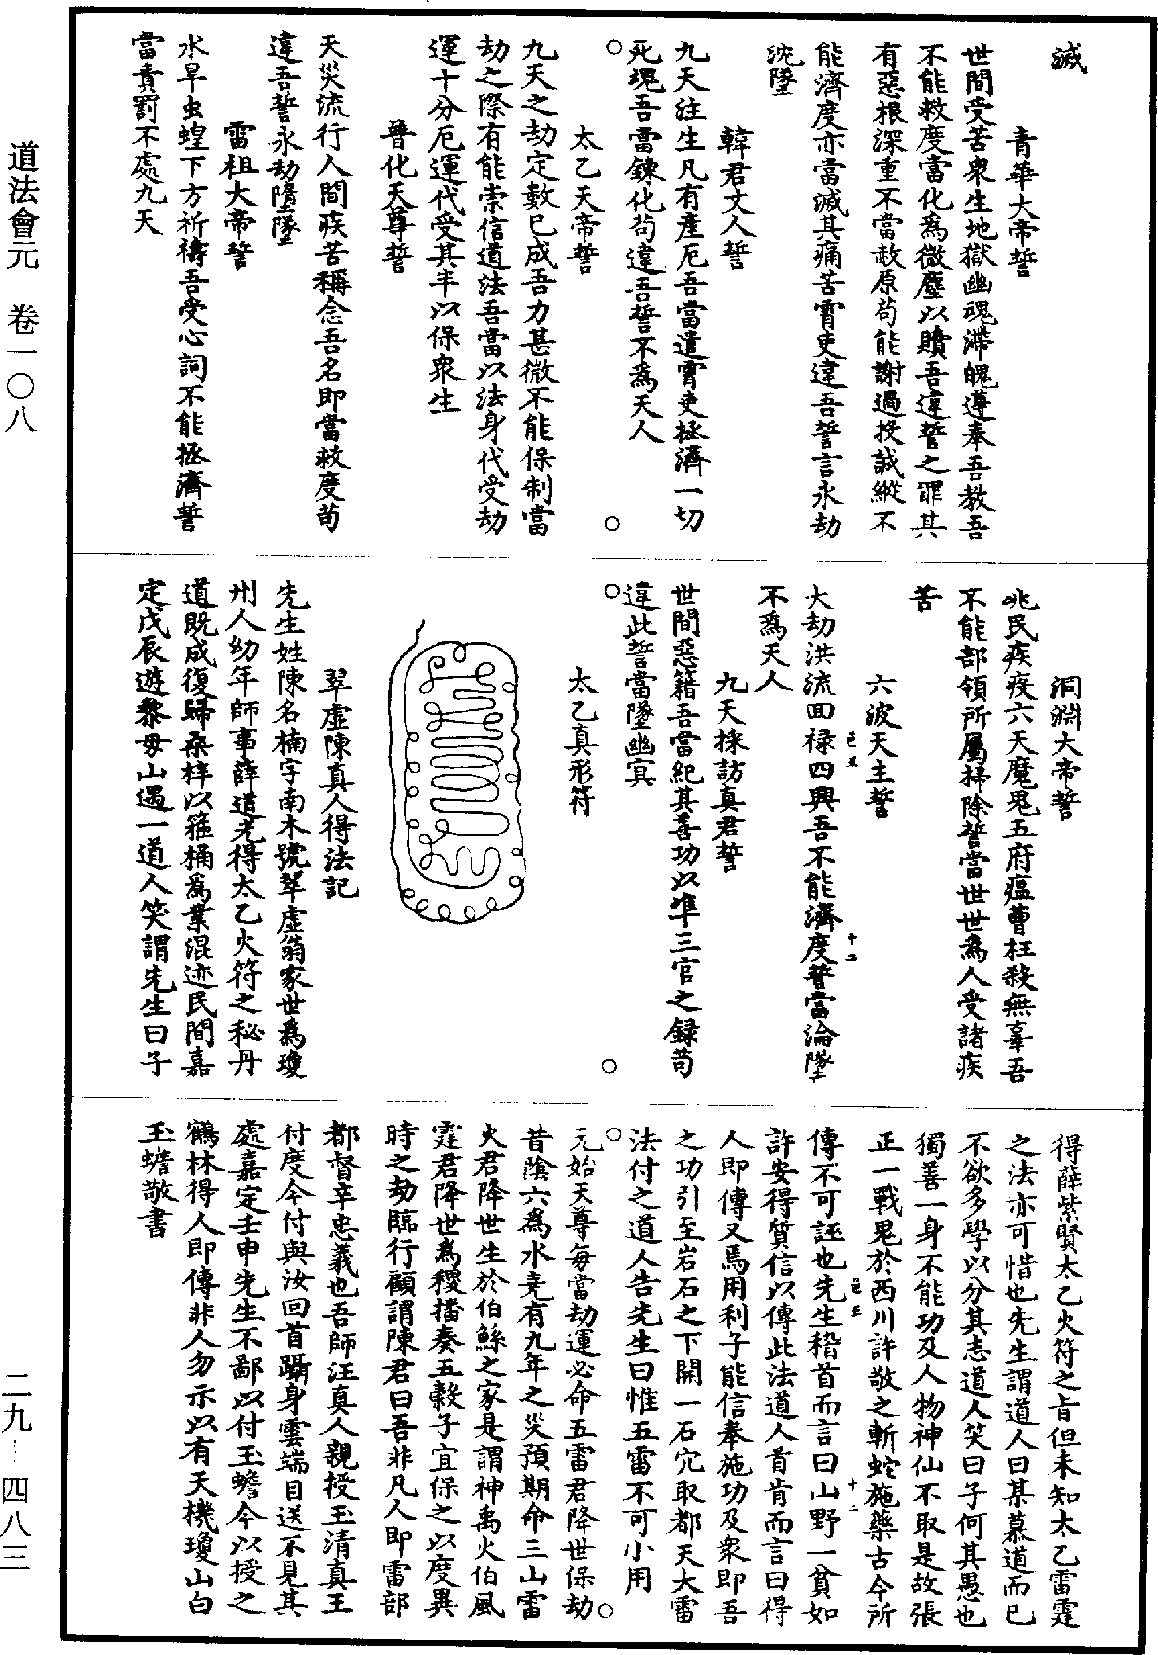 道法會元　卷一〇八
二九——四八三
滅
青華大帝誓
世間受苦衆生地獄幽魂滯魄遵奉吾教吾
不能救度當化爲微塵以贖吾違誓之罪其
有惡根深重不當赦原苟能謝過投誠縱不
能濟度亦當減其痛苦霄吏違吾誓言永劫
沈墜
韓君丈人誓
九天注生凡有產厄吾當遣霄吏拯濟一切
死魂吾當鍊化苟違吾誓不爲天人
太乙天帝誓
九天之劫定數已成吾力甚微不能保制當
劫之際有能崇信道法吾當以法身代受劫
運十分厄運代受其半以保衆生
普化天尊誓
天災流行人間疾苦稱念吾名即當救度苟
違吾誓永劫隳墜
雷祖大帝誓
水旱虫蝗下方祈禱吾受心詞不能拯濟誓
當責罰不處九天
洞淵大帝誓
兆民疾疫六天魔鬼五府瘟曹枉殺無辜吾
不能部領所屬掃除誓當世世爲人受諸疾
苦
六波天主誓
大劫洪流回祿四興吾不能濟度誓當淪墜
不爲天人
九天採訪真君誓
世間惡籍吾當紀其善功以準三官之錄苟
違此誓當墜幽冥
太乙真形符
翠虛陳真人得法記
先生姓陳名楠字南木號翠虛翁家世爲瓊
州人幼年師事薛道光得太乙火符之秘丹
道既成復歸桑梓以箍桶爲業混迹民間嘉
定戊辰遊黎母山遇一道人笑謂先生曰子
得薛紫賢太乙火符之旨但未知太乙雷霆
之法亦可惜也先生謂道人曰某慕道而已
不欲多學以分其志道人笑曰子何其愚也
獨善一身不能功及人物神仙不取是故張
正一戰鬼於西川許敬之斬蛇施藥古今所
傳不可誣也先生稽首而言曰山野一貧如
許安得質信以傳此法道人首肯而言曰得
人即傳又焉用利子能信奉施功及衆即吾
之功引至岩石之下開一石穴取都天大雷
法付之道人告先生曰惟五雷不可小用
元始天尊每當劫運必命五雷君降世保劫
昔陰六爲水堯有九年之災預期命三山雷
火君降世生於伯鯀之家是謂神禹火伯風
霆君降世爲稷播奏五穀子宜保之以度異
時之劫臨行顧謂陳君曰吾非凡人即雷部
都督辛忠義也吾師汪真人親授玉清真王
付度今付與汝回首躡身雲端目送不見其
處嘉定壬申先生不鄙以付玉蟾今以授之
鶴林得人即傳非人勿示以有天機瓊山白
玉蟾敬書